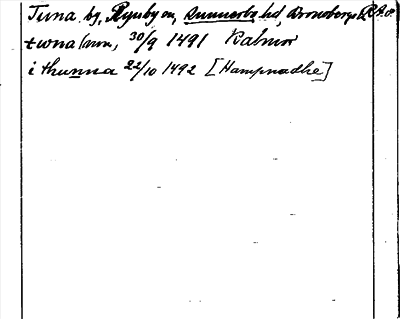 Tuna by, Ryssby sn, Sunnerbo hd, Kronobergs
twna (mm, 30/9 1491 Kalmar
i thunna 22/10 1492 [Hampnadhe]